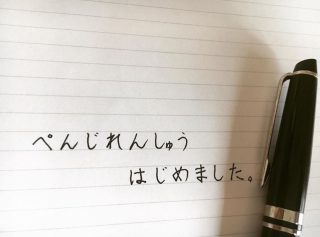 ぺんじれんしゅう
はじめました。